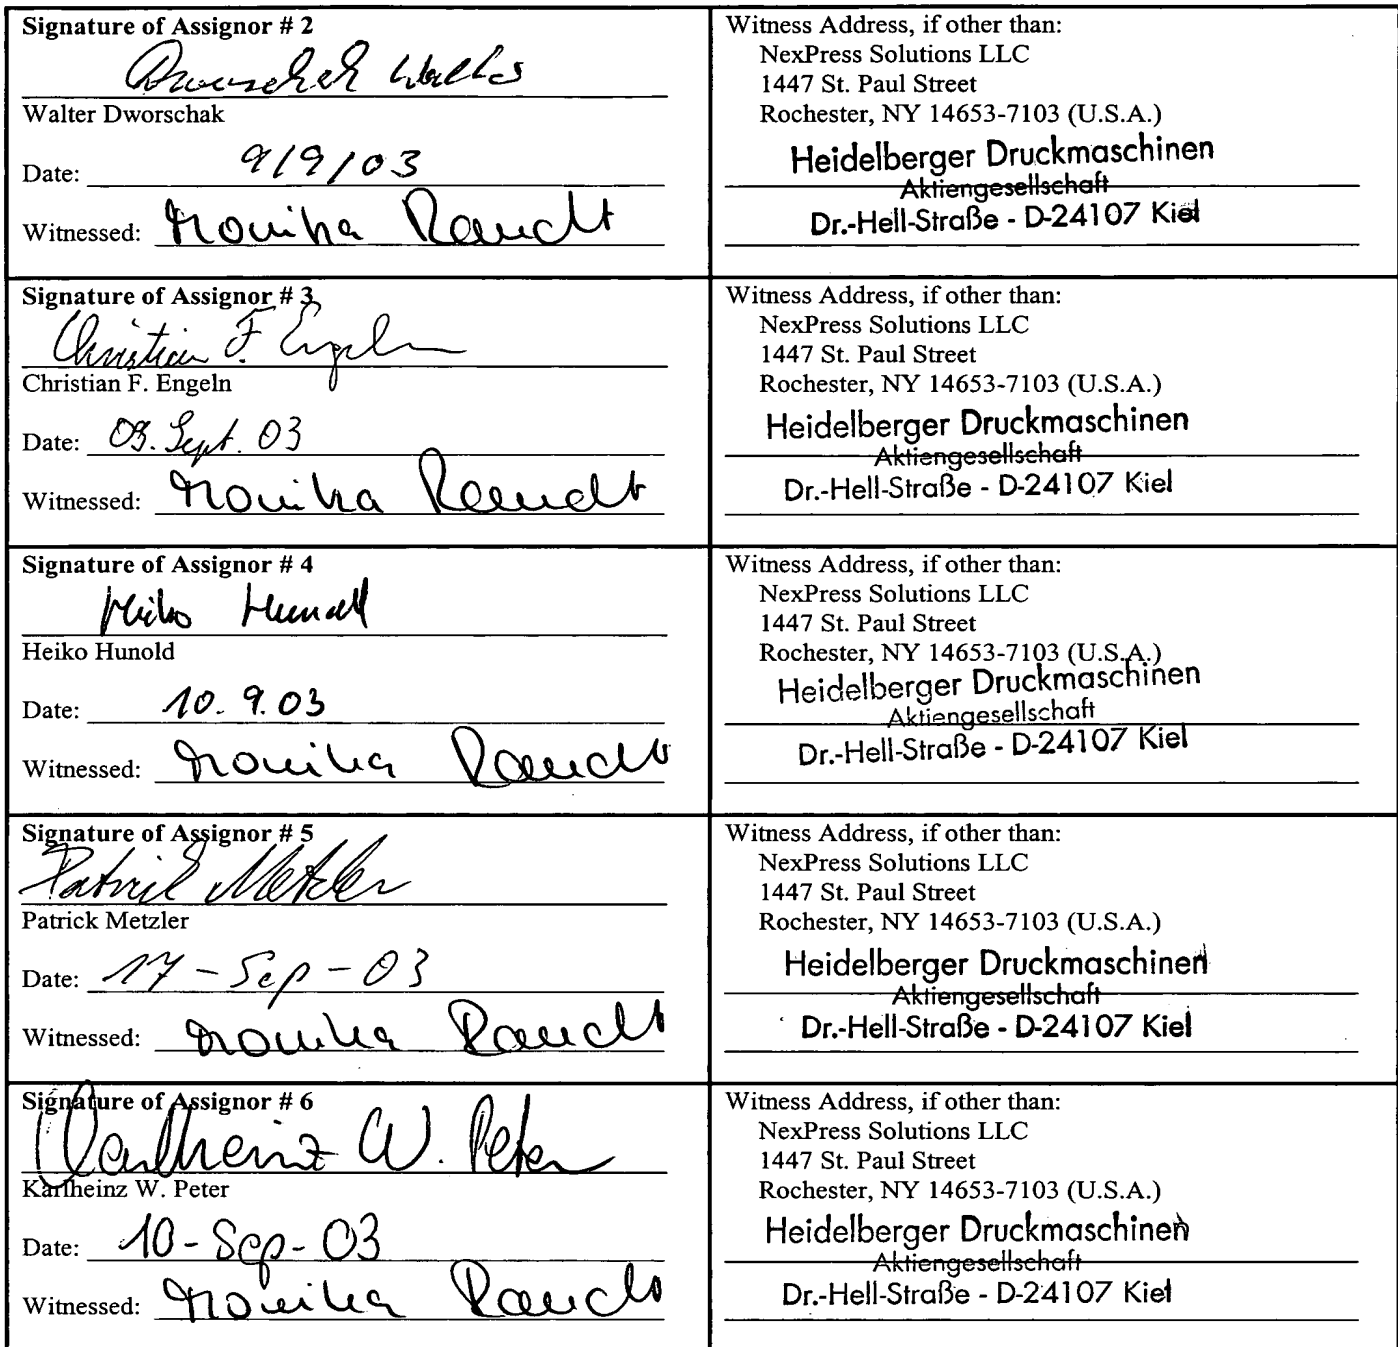 Signature of Assignor # 2
Dworschak Walter
Walter Dworschak
Date: 9/9/03
Witnessed: Monika
Witness Address, if other than:
NexPress Solutions LLC
1447 St. Paul Street
Rochester, NY 14653-7103 (U.S.A.)
Heidelberger Druckmaschinen
Aktiengesellschaft
Dr.-Hell-Straße - D-24107 Kiel
Signature of Assignor # 3
Christian F. Engeln
Christian F. Engeln
Date: 09. Sept. 03
Witnessed: Monika
Witness Address, if other than:
NexPress Solutions LLC
1447 St. Paul Street
Rochester, NY 14653-7103 (U.S.A.)
Heidelberger Druckmaschinen
Aktiengesellschaft
Dr.-Hell-Straße - D-24107 Kiel
Signature of Assignor # 4
Heiko Hunold
Heiko Hunold
Date: 10. 9. 03
Witnessed: Monika
Witness Address, if other than:
NexPress Solutions LLC
1447 St. Paul Street
Rochester, NY 14653-7103 (U.S.A.)
Heidelberger Druckmaschinen
Aktiengesellschaft
Dr.-Hell-Straße - D-24107 Kiel
Signature of Assignor # 5
Patrick Metzler
Patrick Metzler
Date: 17-Sep-03
Witnessed: Monika
Witness Address, if other than:
NexPress Solutions LLC
1447 St. Paul Street
Rochester, NY 14653-7103 (U.S.A.)
Heidelberger Druckmaschinen
Aktiengesellschaft
Dr.-Hell-Straße - D-24107 Kiel
Signature of Assignor # 6
Karlheinz W. Peter
Karlheinz W. Peter
Date: 10-Sep-03
Witnessed: Monika
Witness Address, if other than:
NexPress Solutions LLC
1447 St. Paul Street
Rochester, NY 14653-7103 (U.S.A.)
Heidelberger Druckmaschinen
Aktiengesellschaft
Dr.-Hell-Straße - D-24107 Kiel